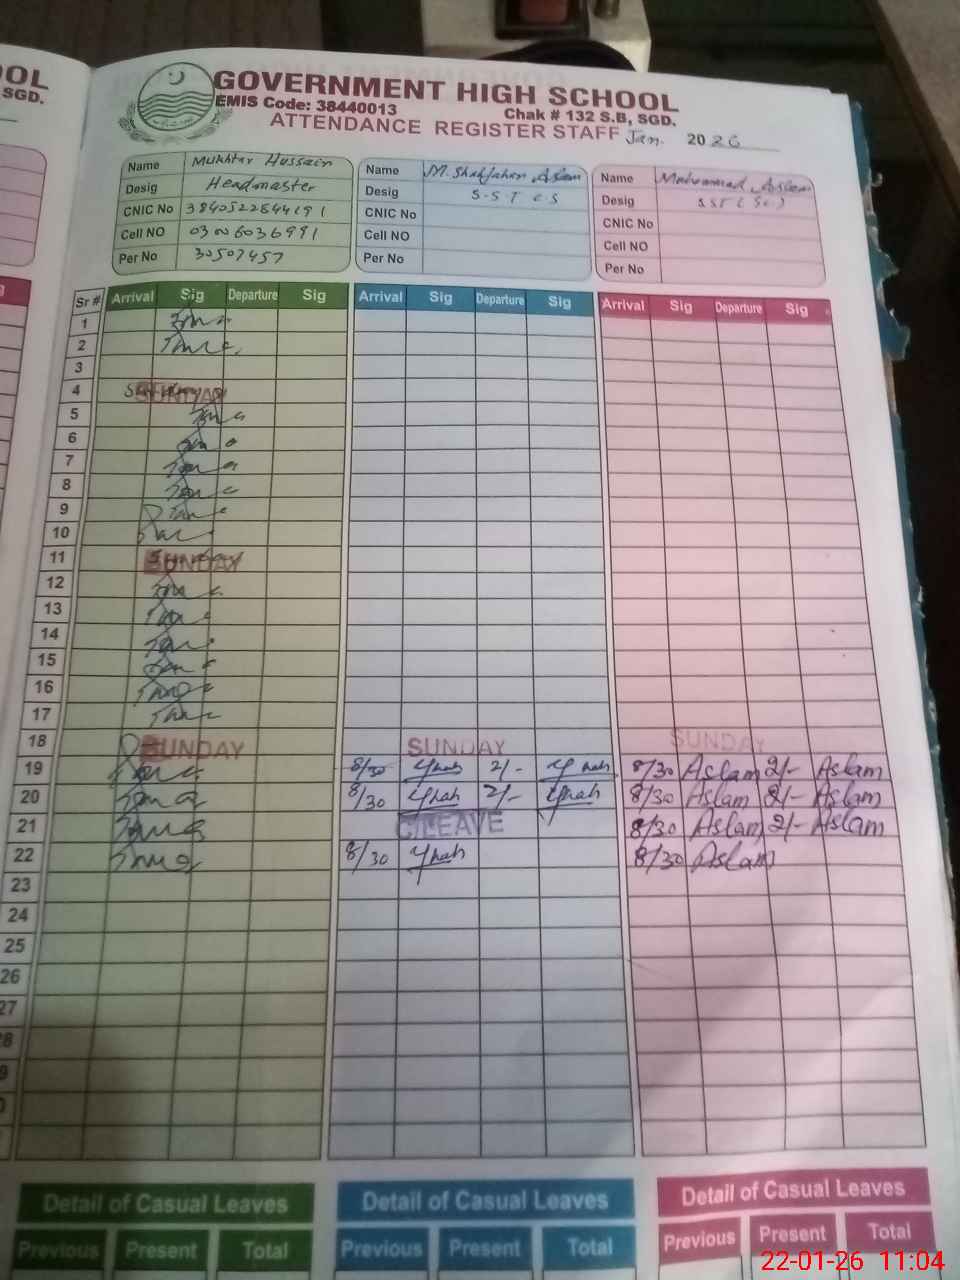 OOL
SGD.
GOVERNMENT HIGH SCHOOL
EMIS Code: 38440013 Chak # 132 S.B, SGD.
ATTENDANCE REGISTER STAFF Jan. 2026
Name Mukhtar Hussain
Desig Headmaster
CNIC No 3840522844191
Cell NO 03006036991
Per No 30507457
Name M. Shahjahan Aslam
Desig S.S.T CS
CNIC No
Cell NO
Per No
Name Muhammad Aslam
Desig SST (Sc)
CNIC No
Cell NO
Per No
Sr # Arrival Sig Departure Sig Arrival Sig Departure Sig Arrival Sig Departure Sig
1
2
3
4 SUNDAY
5
6
7
8
9
10
11 SUNDAY
12
13
14
15
16
17
18 SUNDAY SUNDAY SUNDAY
19 8/30 2/- 8/30 Aslam 2/- Aslam
20 8/30 2/- 8/30 Aslam 2/- Aslam
21 C/LEAVE 8/30 Aslam 2/- Aslam
22 8/30 8/30 Aslam
23
24
25
26
27
28
9
0
Detail of Casual Leaves Detail of Casual Leaves Detail of Casual Leaves
Previous Present Total Previous Present Total Previous Present Total
22-01-26 11:04